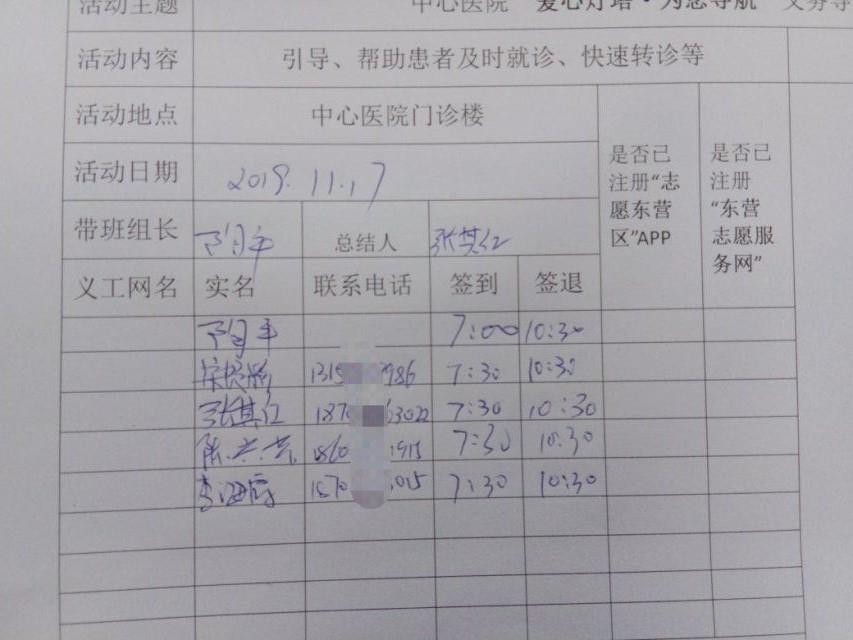 活动主题 中心医院 "爱心灯塔·为您导航" 义务导
活动内容 引导、帮助患者及时就诊、快速转诊等
活动地点 中心医院门诊楼
是否已注册“志愿东营区”APP
是否已注册“东营志愿服务网”
活动日期 2019.11.17
带班组长 总结人 张其红
义工网名 实名 联系电话 签到 签退
7:00 10:30
1315 986 7:30 10:30
张其红 187 63022 7:30 10:30
1860 1915 7:30 10:30
李海 1570 015 7:30 10:30